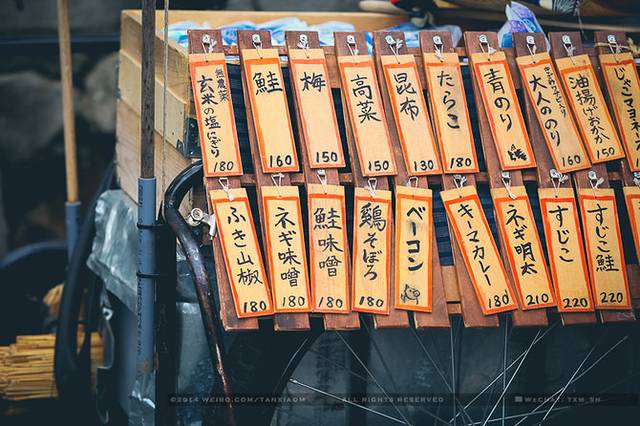 無農薬
玄米の塩にぎり
180
鮭
160
梅
150
高菜
150
昆布
130
たらこ
180
青のり
大人ののり
160
油揚げおかか
150
じゃこマヨ
ふき山椒
180
ネギ味噌
180
鮭味噌
180
鶏そぼろ
180
ベーコン
キーマカレー
180
ネギ明太
210
すじこ
220
すじこ鮭
220
©2014 WEIBO.COM/TANXIAOM
ALL RIGHTS RESERVED
WECHAT: TXM_SH